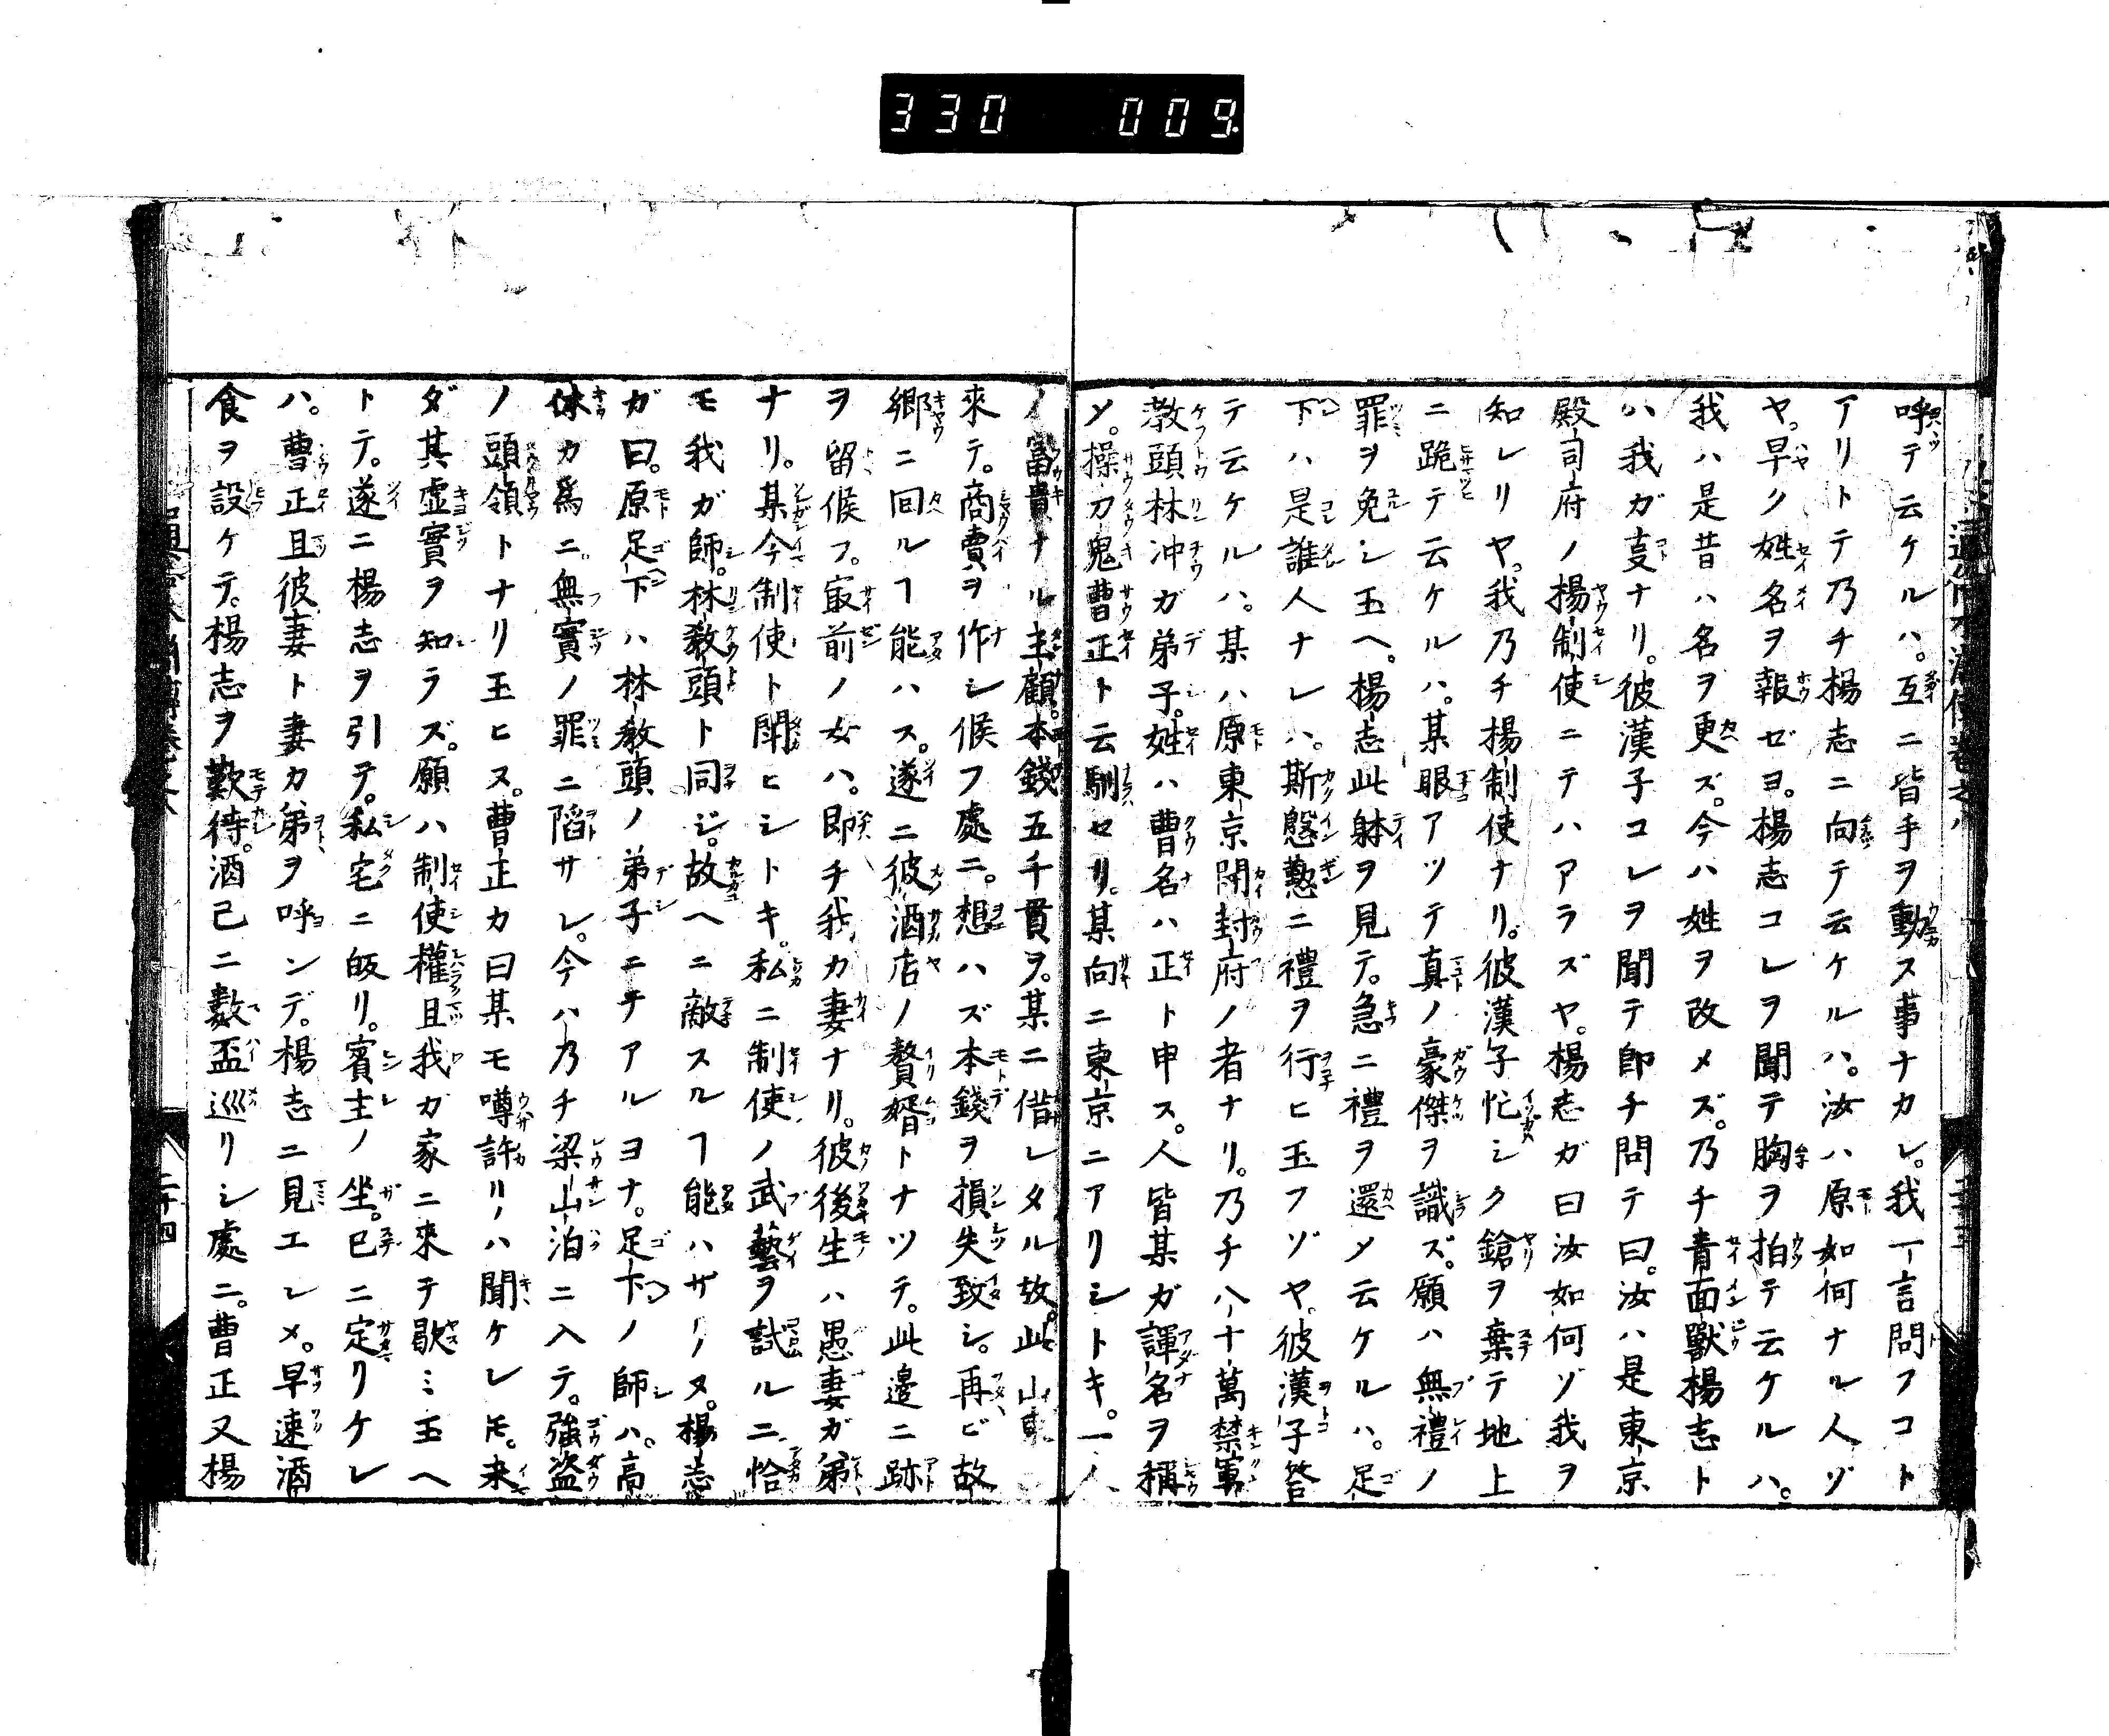 330 009.
呼テ云ケルハ。互ニ皆手ヲ動ス事ナカレ。我一言問フコト
アリトテ乃チ楊志ニ向テ云ケルハ。汝ハ原如何ナル人ゾ
ヤ。早ク姓名ヲ報ゼヨ。楊志コレヲ聞テ胸ヲ拍テ云ケルハ。
我ハ是昔ハ名ヲ更ズ。今ハ姓ヲ改メズ。乃チ青面獸楊志ト
ハ我ガ叓ナリ。彼漢子コレヲ聞テ即チ問テ曰。汝ハ是東京
殿司府ノ楊制使ニテハアラズヤ。楊志ガ曰汝如何ゾ我ヲ
知レリヤ。我乃チ楊制使ナリ。彼漢子忙シク鎗ヲ棄テ地上
ニ跪テ云ケルハ。某眼アツテ真ノ豪傑ヲ識ズ。願ハ無禮ノ
罪ヲ免シ玉ヘ。楊志此躰ヲ見テ。急ニ禮ヲ還メ云ケルハ。足
下ハ是誰人ナレハ。斯慇懃ニ禮ヲ行ヒ玉フゾヤ。彼漢子答
テ云ケルハ。某ハ原東京開封府ノ者ナリ。乃チ八十萬禁軍
教頭林冲ガ弟子。姓ハ曹名ハ正ト申ス。人皆某ガ諢名ヲ稱
メ。操刀鬼曹正ト云馴セリ。某向ニ東京ニアリシトキ。一人
ノ富貴ナル主顧。本錢五千貫ヲ。某ニ借レタル故。此山東
來テ。商賣ヲ作シ候フ處ニ。想ハズ本錢ヲ損失致シ。再ビ故
郷ニ回ルヿ能ハス。遂ニ彼酒店ノ贅婿トナツテ。此邉ニ跡
ヲ留候フ。冣前ノ女ハ。即チ我カ妻ナリ。彼後生ハ愚妻ガ弟
ナリ。某今制使ト鬪ヒシトキ。私ニ制使ノ武藝ヲ試ルニ恰
モ我ガ師。林教頭ト同ジ。故ヘニ敵スルヿ能ハザリノヌ。楊志
ガ曰。原足下ハ林教頭ノ弟子ニテアルヨナ。足下ノ師ハ。高
俅カ爲ニ。無實ノ罪ニ陷サレ。今ハ乃チ梁山泊ニ入テ。強盗
ノ頭領トナリ玉ヒヌ。曹正カ曰某モ噂許リハ聞ケレ𪜈。未
ダ其虚實ヲ知ラズ。願ハ制使權且我ガ家ニ來テ歇ミ玉ヘ
トテ。遂ニ楊志ヲ引テ。私宅ニ皈リ。賓主ノ坐。已ニ定リケレ
ハ。曹正且彼妻ト妻カ弟ヲ呼ンデ。楊志ニ見エシメ。早速酒
食ヲ設ケテ。楊志ヲ歎待。酒已ニ數盃巡リシ處ニ。曹正又楊
二十四